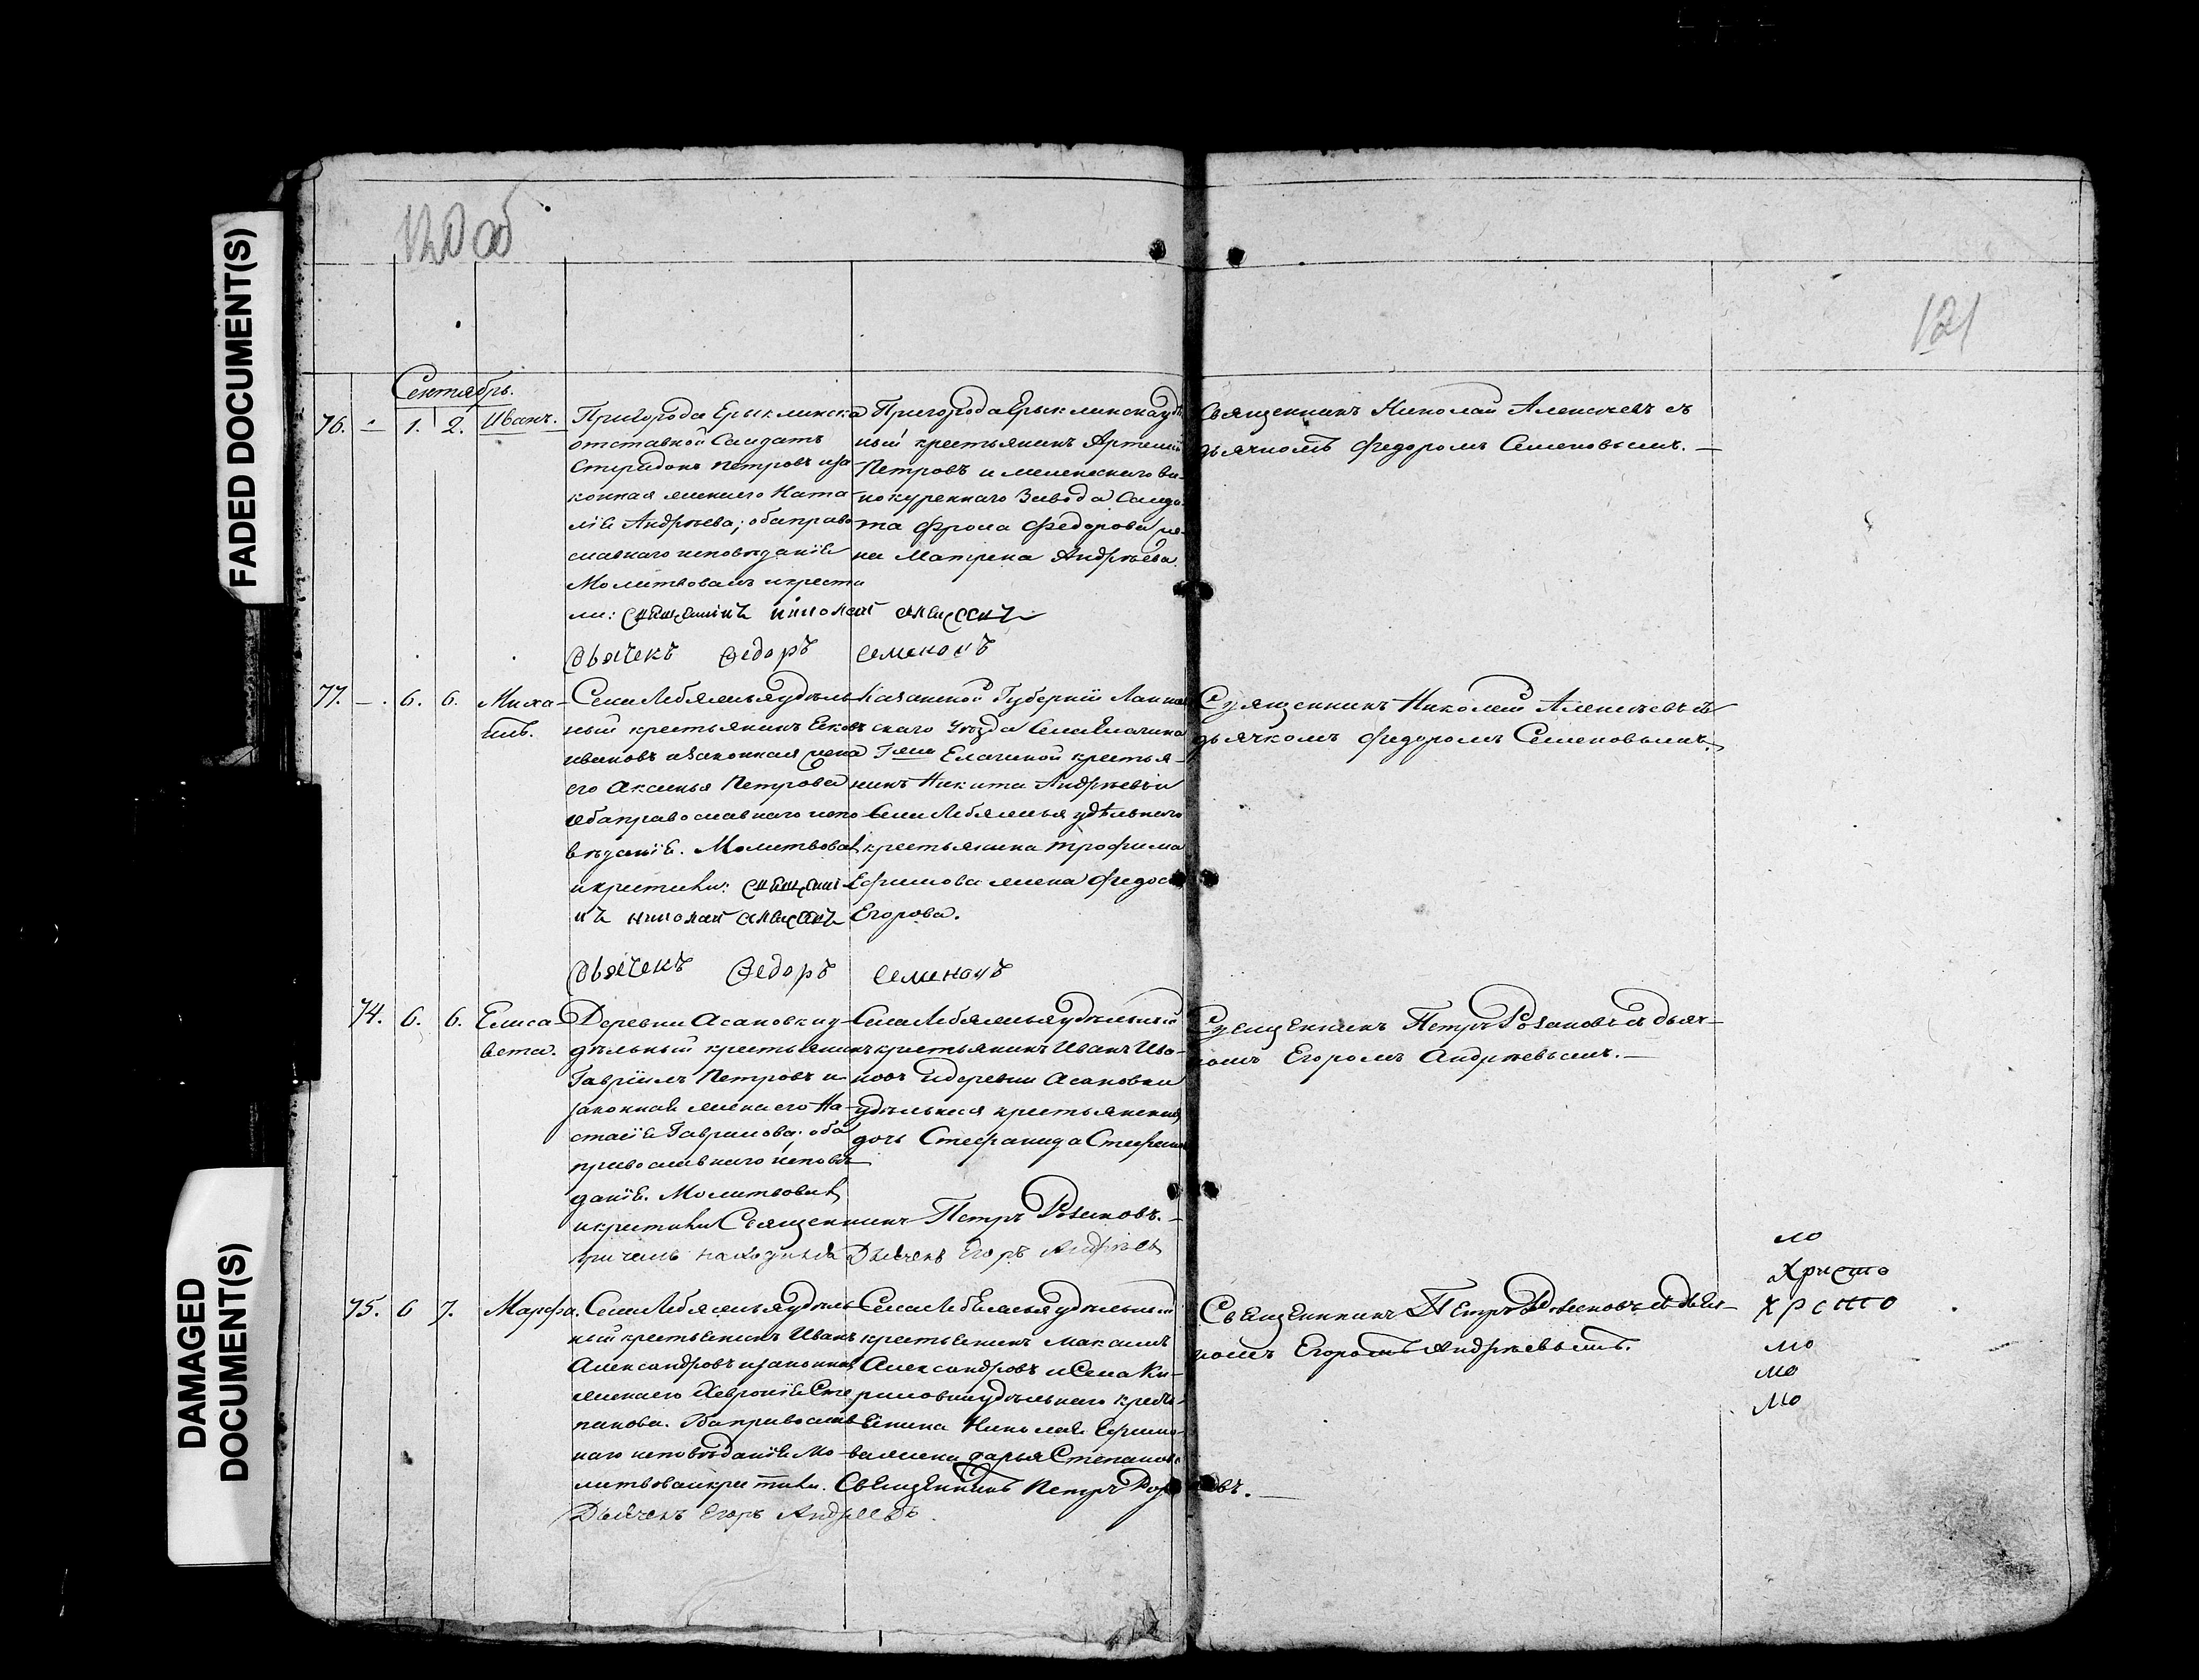 FADED DOCUMENT(S)
DAMAGED
DOCUMENT(S)
120 об
121
Сентябрь.
76. - 1. 2. Иванъ.
Пригорода Ерыклинска
отставной Салдатъ
Спиридонъ Петровъ иза
конная жена его Ната
лія Андрѣева; оба право
славнаго исповѣданія
Молитвовалъ и крести
ли: Священникъ Николай Алексѣевъ
Дьячекъ Федоръ Семеновъ
Пригорода Ерыклинска удѣль
ный крестьянинъ Артемій
Петровъ и мелекескаго ви-
нокуреннаго Завода Салда
та Фрола Федорова же-
на Матрена Андрѣева
Священникъ Николай Алексѣевъ съ
дьячкомъ Федоромъ Семеновымъ. —
77. - . 6. 6. Миха-
илъ.
Села Лебяжья удѣль
ный крестьянинъ Яковъ
Ивановъ и законная жена
его Аксинья Петрова
оба православнаго испо
вѣданія. Молитвовалъ
и крестили: Священни
къ Николай Алексѣевъ
Дьячекъ Федоръ Семеновъ
Казанской Губерніи Лаише
вскаго Уѣзда Села
Елагиной крестья-
нинъ Никита Андрѣевъ и
Села Лебяжья удѣльнаго
крестьянина Трофима
Ефимова жена Федось
Егорова.
Священникъ Николай Алексѣевъ съ
дьячкомъ Федоромъ Семеновымъ.
74. 6. 6. Елиса-
вета.
Деревни Асановки у-
дѣльный крестьянинъ
Гавріилъ Петровъ и
законная жена его На-
стасія Гаврилова; оба
православнаго исповѣ
данія. Молитвовалъ
и крестили Священникъ Петръ Розановъ. —
при чемъ находился Дьячекъ Егоръ Андрѣевъ
Села Лебяжья удѣльный
крестьянинъ Иванъ Ива-
новъ и деревни Асановки
удѣльнаго крестьянина
дочь Стефанида Стефано
Священникъ Петръ Розановъ съ дьяч-
комъ Егоромъ Андрѣевымъ. —
75. 6 7. Марфа.
Села Лебяжья удѣль
ный крестьянинъ Иванъ
Александровъ и законная
жена его Хевронія Сте
панова. Оба православ
наго исповѣданія Мо-
литвовалъ и крестили. Священникъ Петръ Розановъ. —
Дьячекъ Егоръ Андреевъ.
Села Лебяжья удѣльный
крестьянинъ Максимъ
Александровъ и Села Ки-
риловки удѣльнаго кресть-
янина Николая Ефимо-
ва жена Дарья Степанова
Священникъ Петръ Розановъ съ дьяч-
комъ Егоромъ Андрѣевымъ.
мо
Христо
Христо
мо
мо
мо